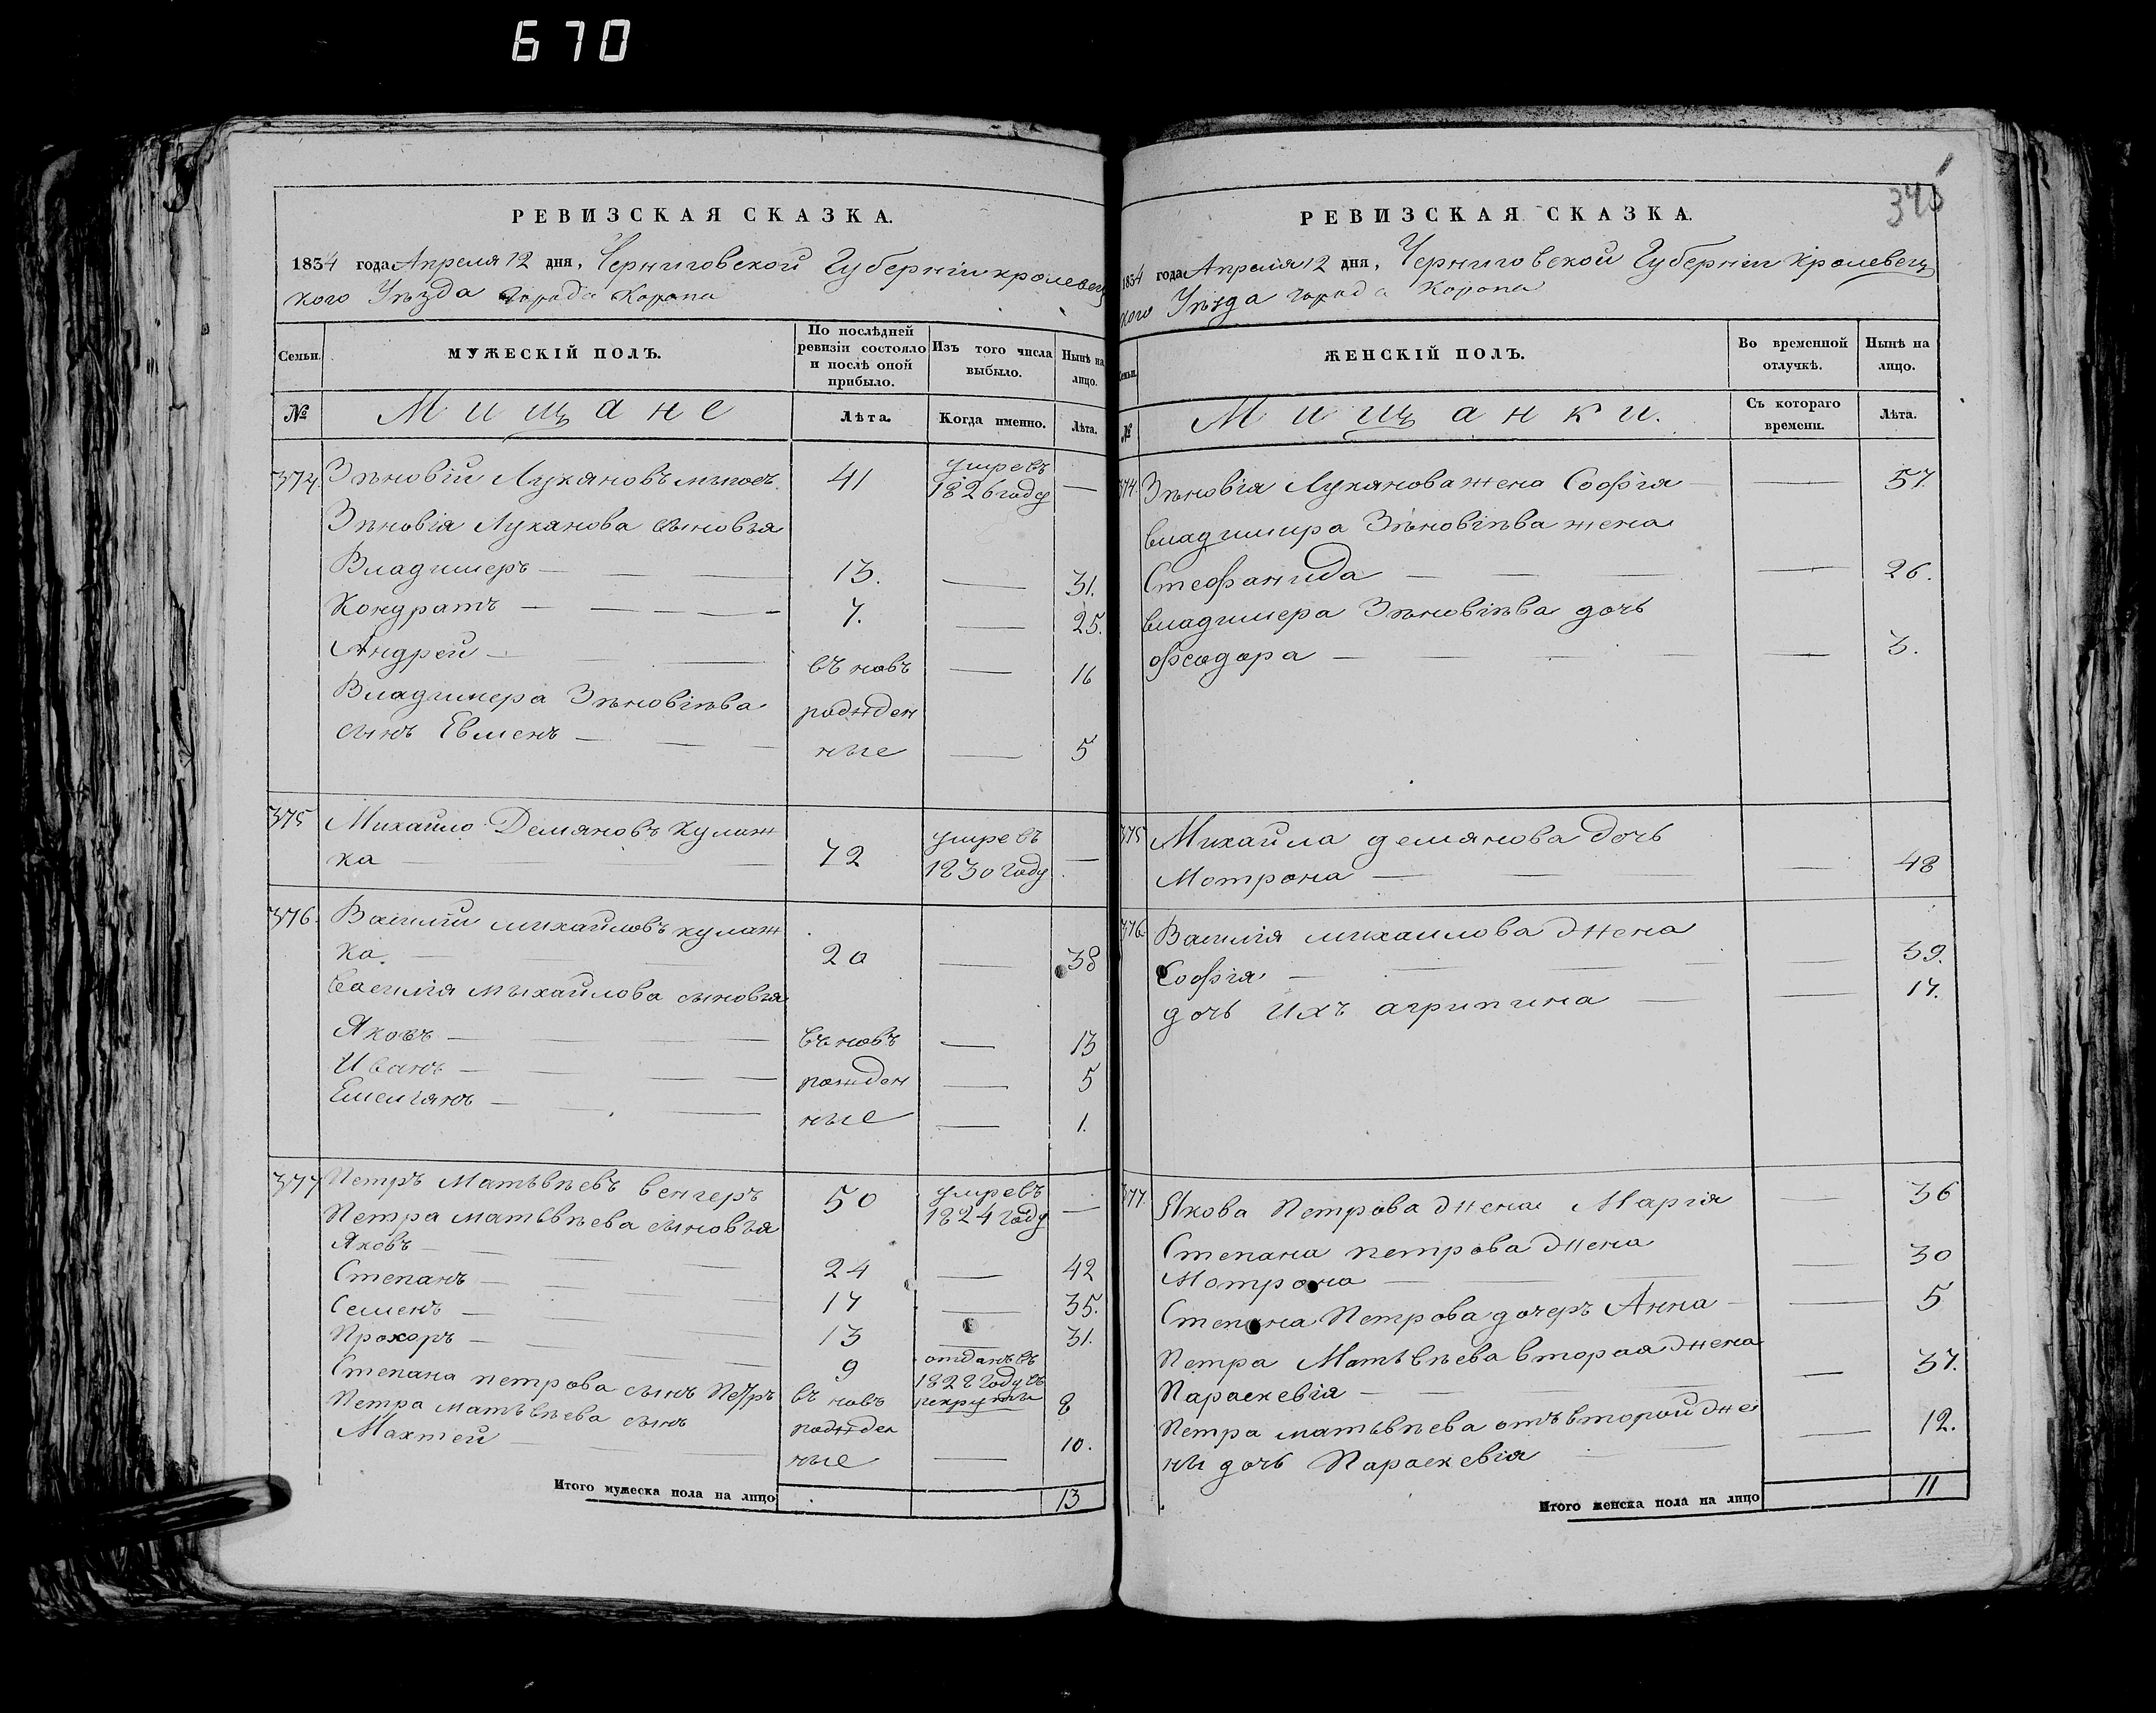 670
РЕВИЗСКАЯ СКАЗКА.
1834 года Апреля 12 дня, Черниговской Губерніи кролевец
кого Уѣзда города Коропа
Семьи.
МУЖЕСКІЙ ПОЛЪ.
По послѣдней
ревизіи состояло
и послѣ оной
прибыло.
Изъ того числа
выбыло.
Нынѣ на
лицо.
№
Мищане
Лѣта.
Когда именно.
Лѣта.
374. Зѣновій Лукяновъ 41 умре въ
1826 году —
Зѣновія Лукянова сыновья
Владимеръ — 13. — 31.
Кондратъ — 7. — 25.
Андрей — въ новъ — 16
Владимера Зѣновіѣва рожден
сынъ Евменъ — ные — 5
375 Михайло Демяновъ кулаж
ка — 72 умре въ
1830 году —
376. Василій михайловъ кулаж
ка. — 20 — 38
Василія михайлова сыновья
Яковъ — въ новъ — 13
Иванъ — рожден — 5
Емеліянъ — ные — 1.
377 Петръ Матвѣевъ венгеръ 50 умре въ
1824 году —
Петра матьвѣева сыновья
Яковъ — 24 — 42
Степанъ — 17 — 35.
Семенъ — 13 — 31.
Прохоръ — 9 отданъ въ
1828 году въ
рекруты
Степана петрова сынъ Петръ въ новъ 8
Петра матьвѣева сынъ рожден
Махтей ные — 10.
Итого мужеска пола на лицо 13
346
РЕВИЗСКАЯ СКАЗКА.
1834 года Апреля 12 дня, Черниговской Губерніи Кролевец
кого Уѣзда города Коропа
Семьи.
ЖЕНСКІЙ ПОЛЪ.
Во временной
отлучкѣ.
Нынѣ на
лицо.
№
Мищанки.
Съ котораго
времени.
Лѣта.
374. Зѣновія Лукянова жена Софія — 57.
владимира Зѣновіѣва жена
Стефанида — — 26.
владимера Зѣновіѣва дочь
феодора — — 3.
375 Михайла демянова дочь
Мотрона — — 48
376. Василія михаилова жена
Софія — — 39.
дочь Ихъ агрипина — 17.
377. Якова Петрова жена Марія — 36
Степана петрова жена
Мотрона — — 30
Степана Петрова дочеръ Анна — 5
Петра Матьвѣева вторая жена
Параскевія — — 37.
Петра матьвѣева отъ второй же
ны дочь Параскевія — 12.
Итого женска пола на лицо 11